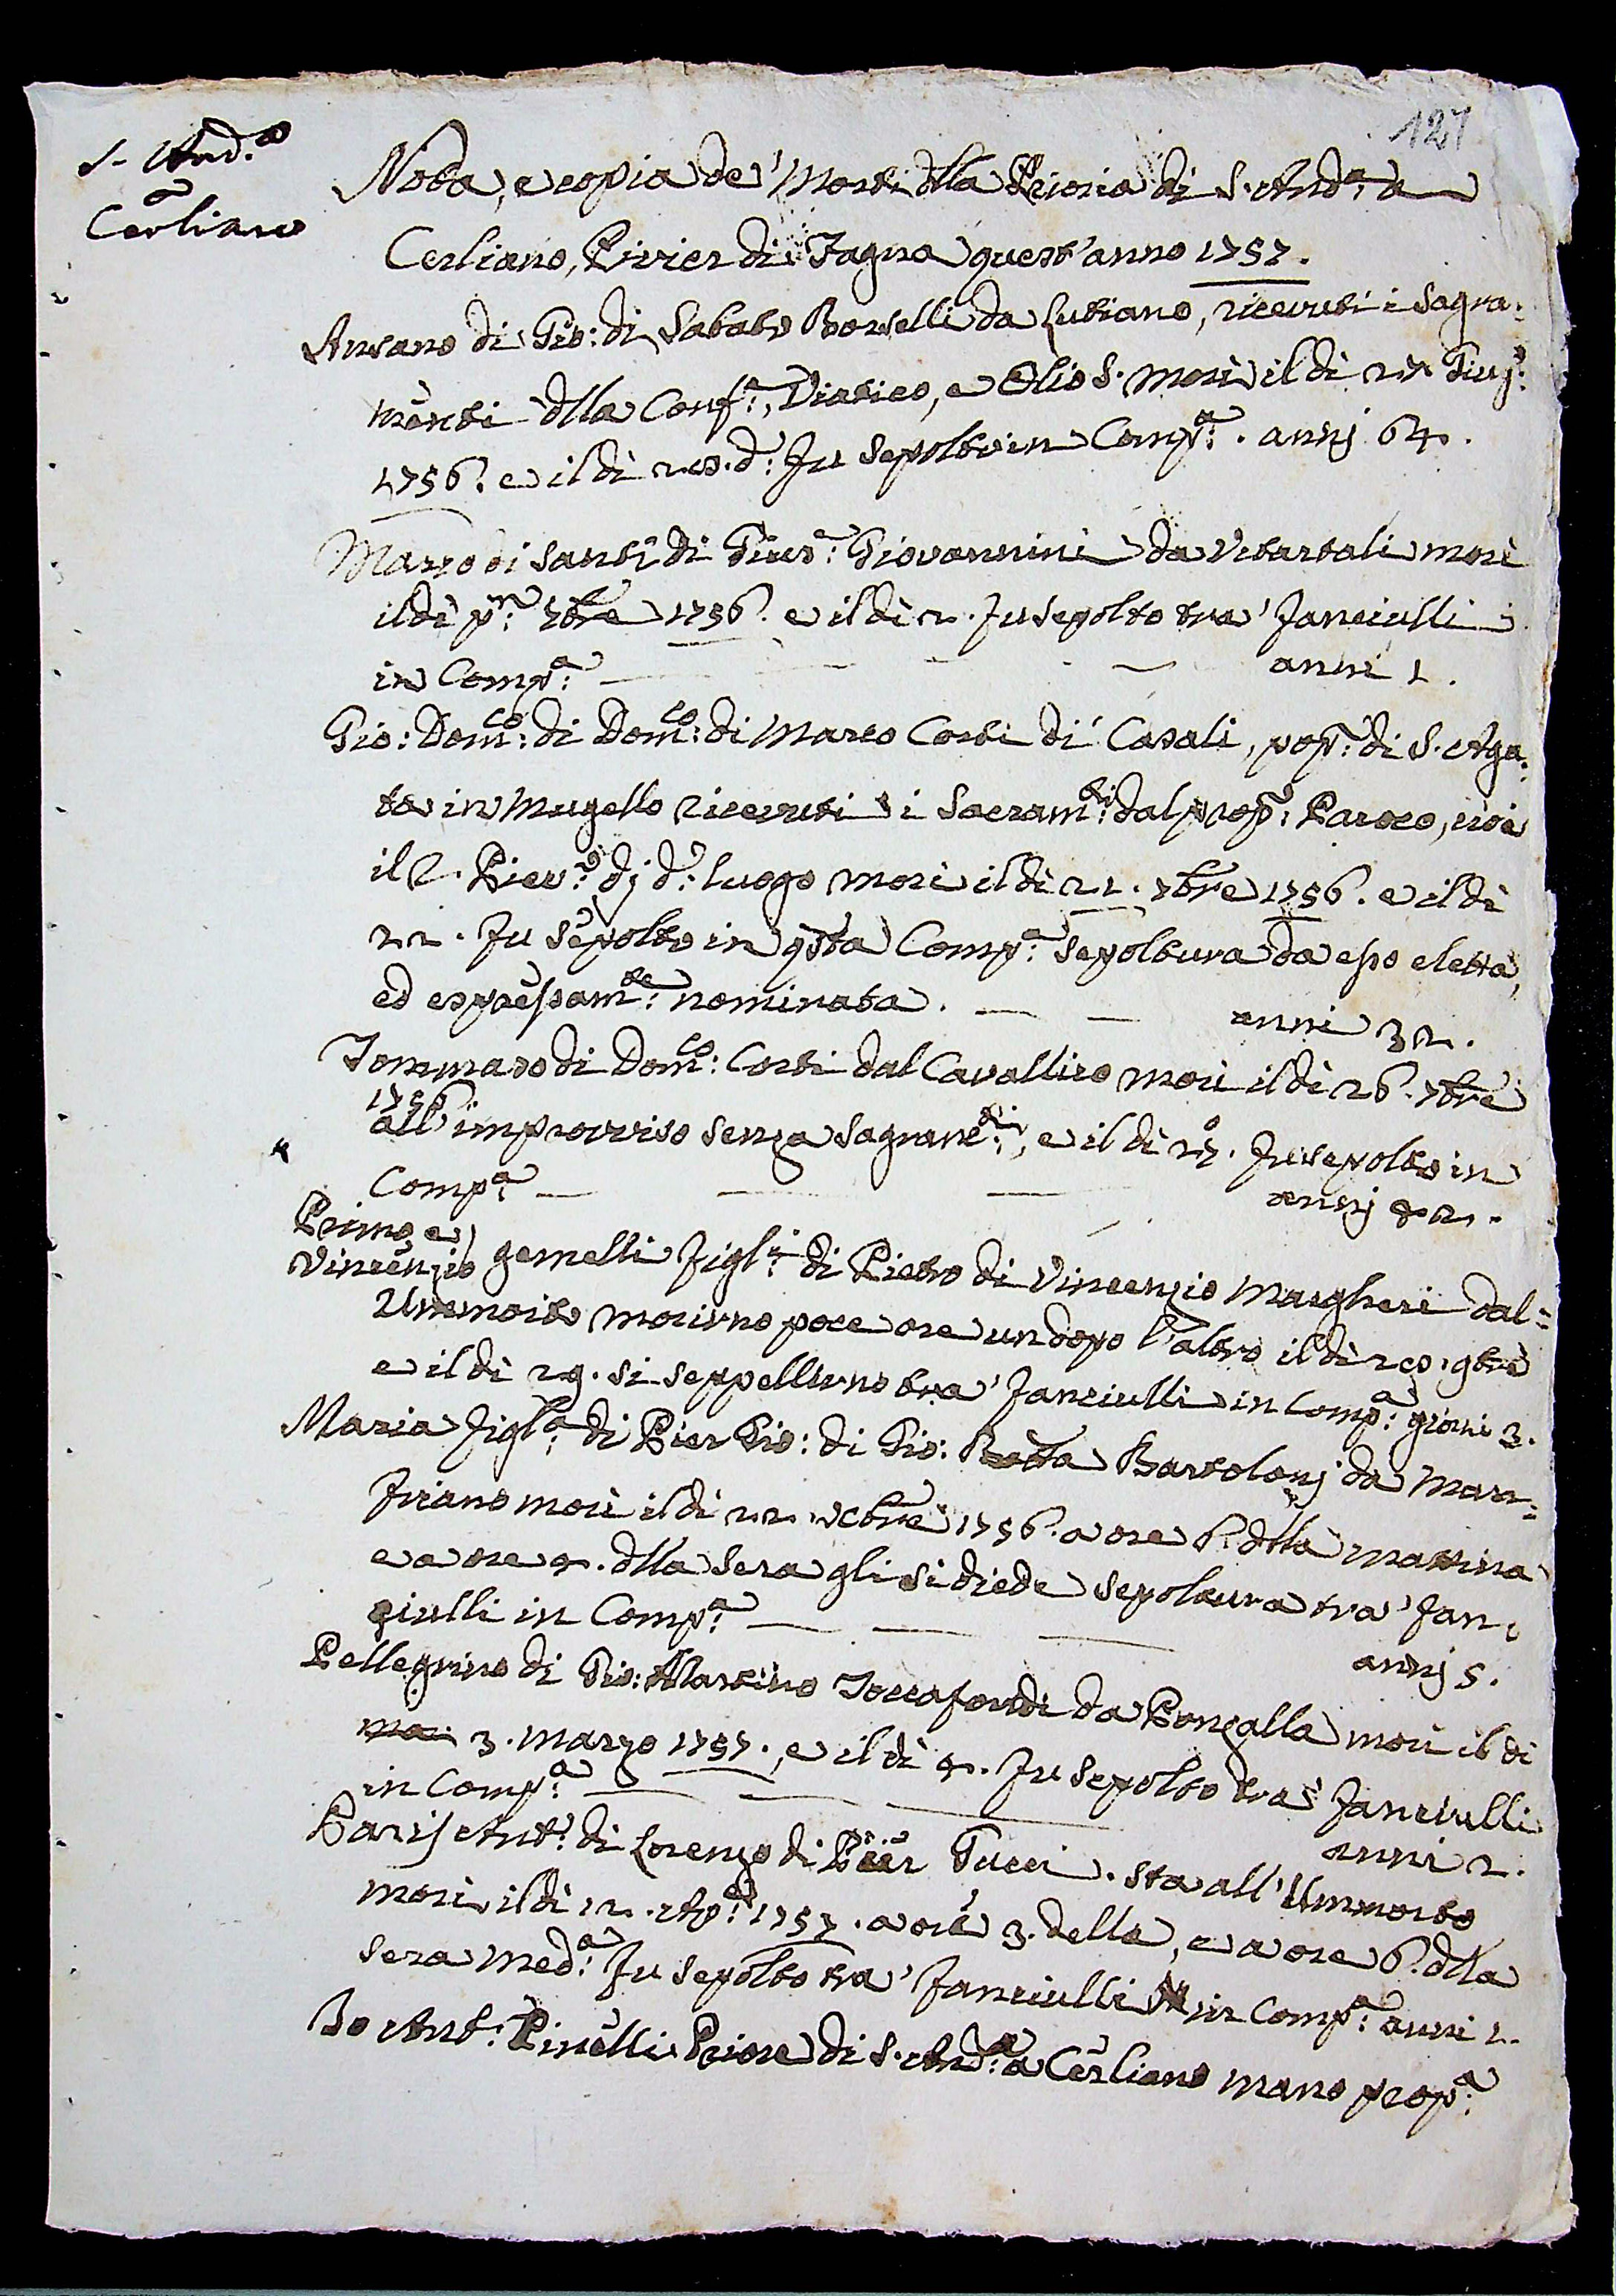 127
S. And.a
a
Cerliano
Nota, e copia de' Morti dlla Prioria di S. And.a a
Cerliano, Pivier di Fagna quest'anno 1757.
Ansano di Gio: di Sabato Borselli da Lutiano, ricevuti i Sagra=
menti dlla Conf.e, Viatico, e Olio S. morì il dì 27 Giug.o
1756. e il dì 28. d.o fu sepolto in Comp.a. annj 64.
Marco di Santi di Gius.e Giovannini da Vitartali morì
il dì p.mo 7bre 1756. e il dì 2. fu sepolto tra' fanciulli
in Comp.a — — — anni 1.
Gio: Dom.co: di Dom.co: di Marco Corti di Casali, pop.o di S. Aga=
ta in Mugello ricevuti i Sacram.ti dal prop.o Paroco, cioè
il S. Piev.o dj d.o luogo morì il dì 21. 7bre 1756. e il dì
22. fu sepolto in qsta Comp.a sepoltura da esso eletta,
ed espressam.te nominata. — — anni 32.
Tommaso di Dom.co: Corti dal Cavallico morì il dì 26. 7bre
1756
all'improvviso senza Sagrame.ti, e il dì 27. fu sepolto in
Comp.a — — — annj 42.
Primo, e
Vincenzio gemelli figl.i di Pietro di Vincenzio Margheri dal=
l'Ammorto morirno poce ore un dopo l'altro il dì 28. 9bre
e il dì 29. si seppellirno tra' fanciulli in Comp.a giorni 3.
Maria figl.a di Pier Gio: di Gio: Batta Bartolonj da Mare=
friano morì il dì 22. Xbre 1756. a ore 6. dlla mattina
e a ore 4. dlla sera gli si diede sepoltura tra' fan=
ciulli in Comp.a — — — annj 5.
Pellegrino di Gio: Martino Toccafondi da Ponzalla morì il dì
3. Marzo 1757., e il dì 4. fu sepolto tra' fanciulli
in Comp.a — — — anni 2.
Paris Ant.o di Lorenzo di Pier Gucci. sta all'Ummorto
morì il dì 12. Ap.e 1757. a ore 3. della, e a ore 6. dlla
sera med.a fu sepolto tra' fanciulli in Comp.a anni 1.
Io Ant.o Pinelli Priore di S. And.a a Cerliano mano prop.a